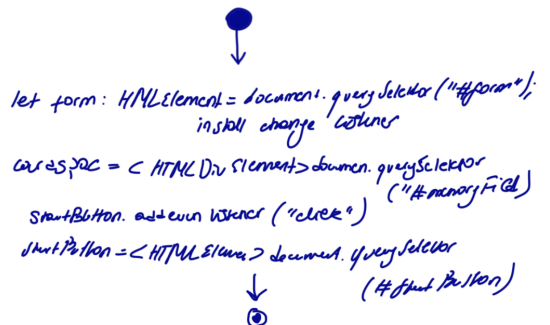 let form: HMLElement = document.querySelector("#form");
install change listener
= <HTMLDivElement> documen.querySelector
("#memoryField)
startButton. addeven listener ("click")
startButton = <HTMLElemen> document.querySelector
(#startButton)